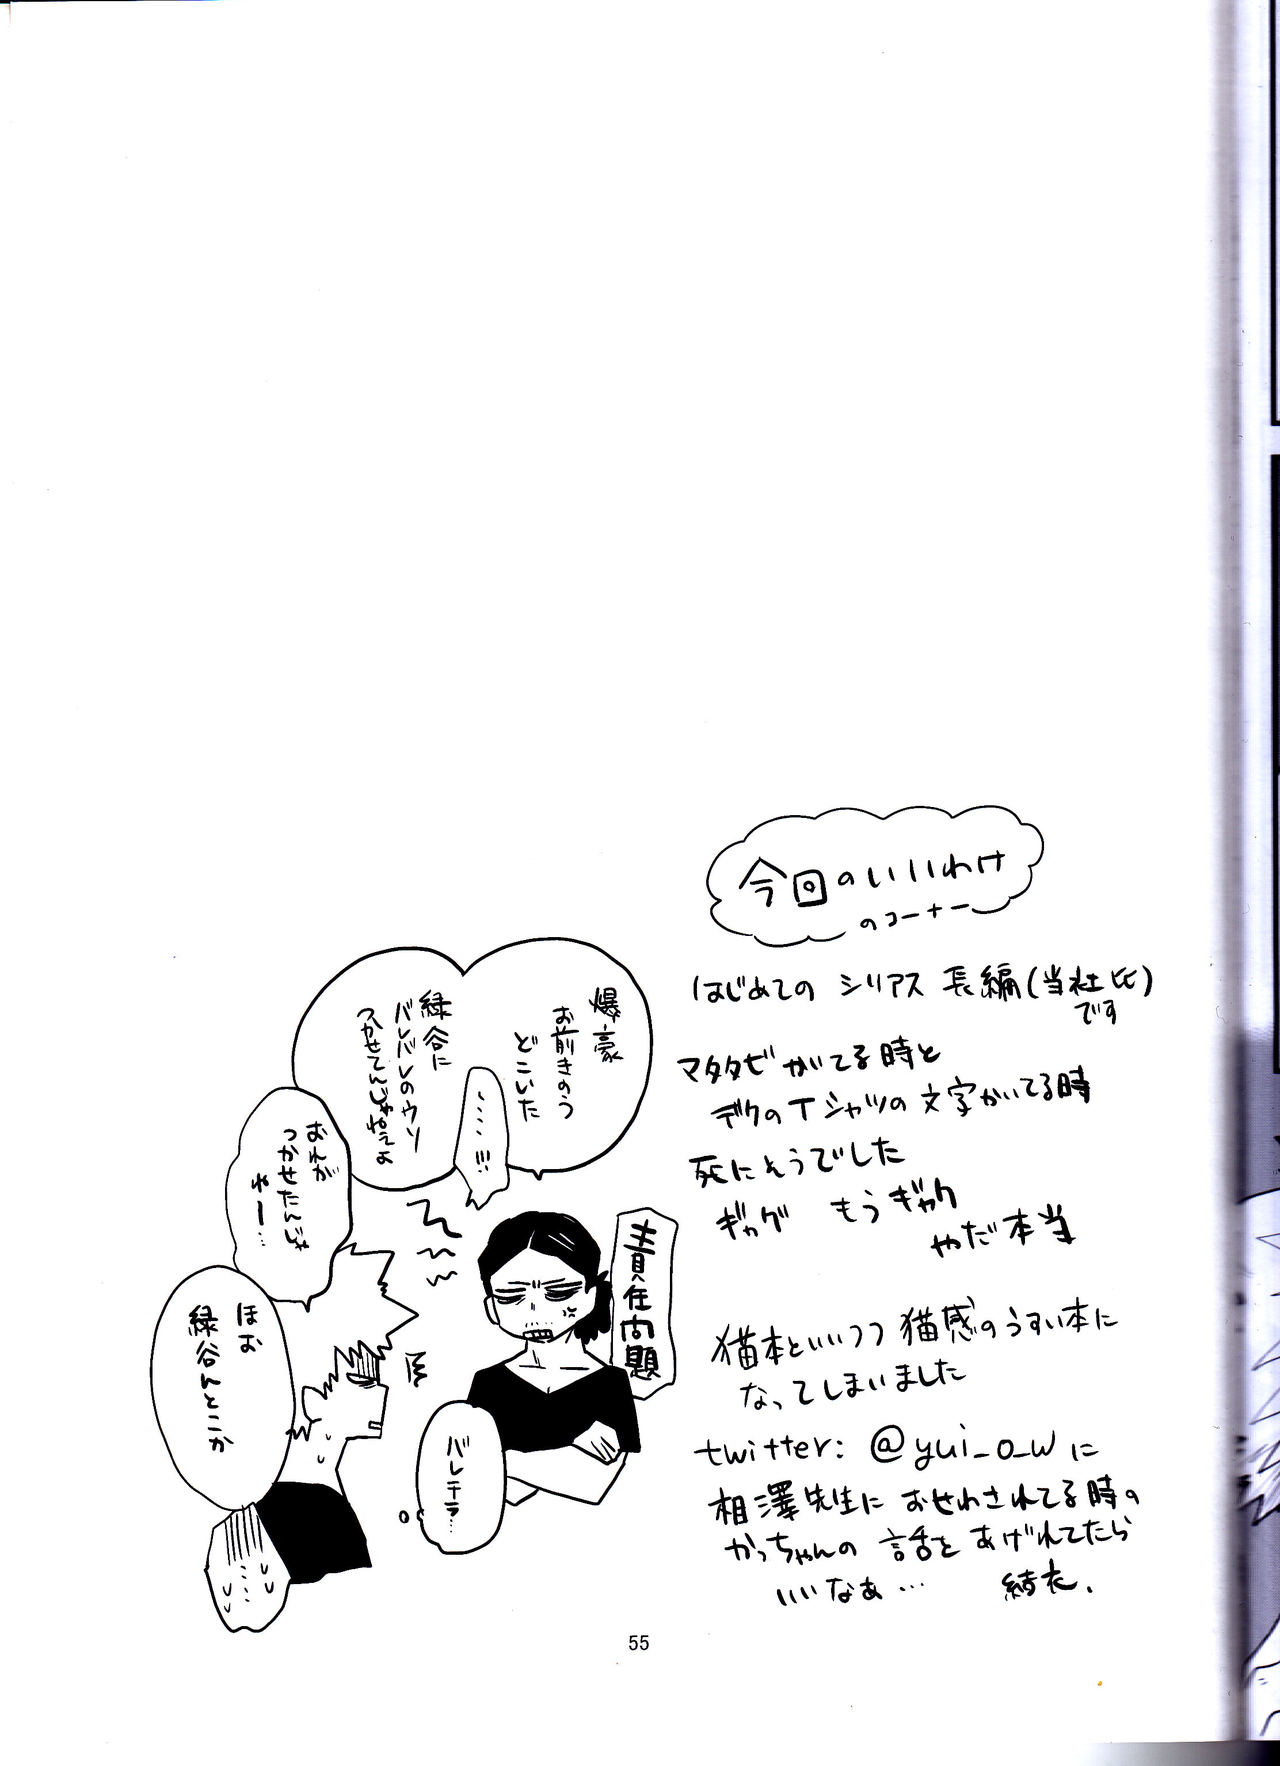 今回のいいわけ
のコーナー
はじめての シリアス 長編(当社比)
です
マタタビがでる時と
デクのTシャツの文字かいてる時
死にそうでした
ギャグ もうギャグ
やだ本当
猫本といいつつ猫感のうすい本に
なってしまいました
twitter: @yui_o_wに
相澤先生に おせわされてる時の
かっちゃんの 話を あげれてたら
いいなぁ… 結衣.
爆豪
お前きのう
どこいた
……!!!
緑谷に
バレバレのウソ
つかせてんじゃねぇよ
おれが
つかせたんじゃ
ねー…
責任問題
ほお
緑谷んとこか
バレテラ…
…
55